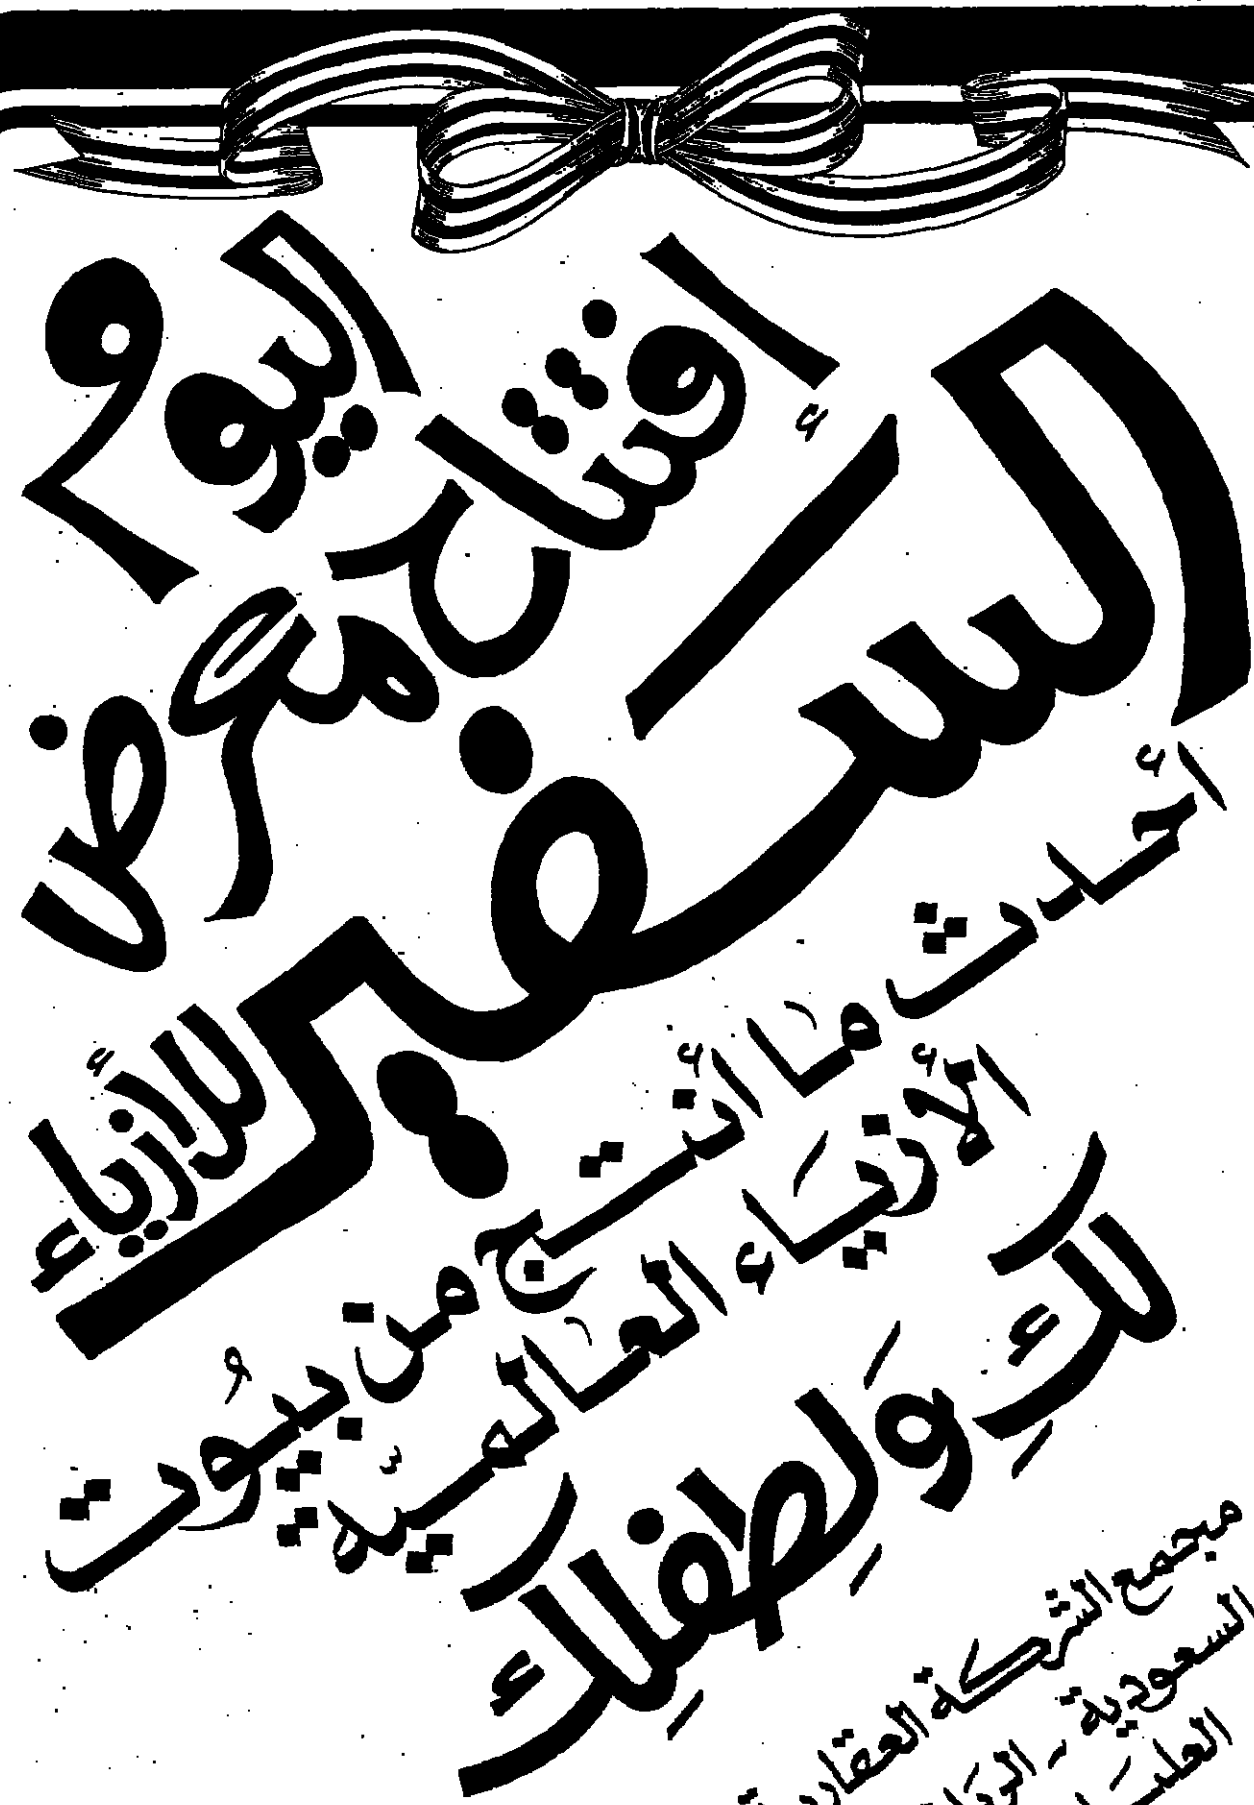 اليوم
افتتاح
معرض
السفير
للأزياء
أحدث ما أنتجت من بيُوت
الأزيَاء العالميّه
لكِ وَلِطفلِك
مجمع الشركة العقارية
السعودية - الريَاض
العليَا